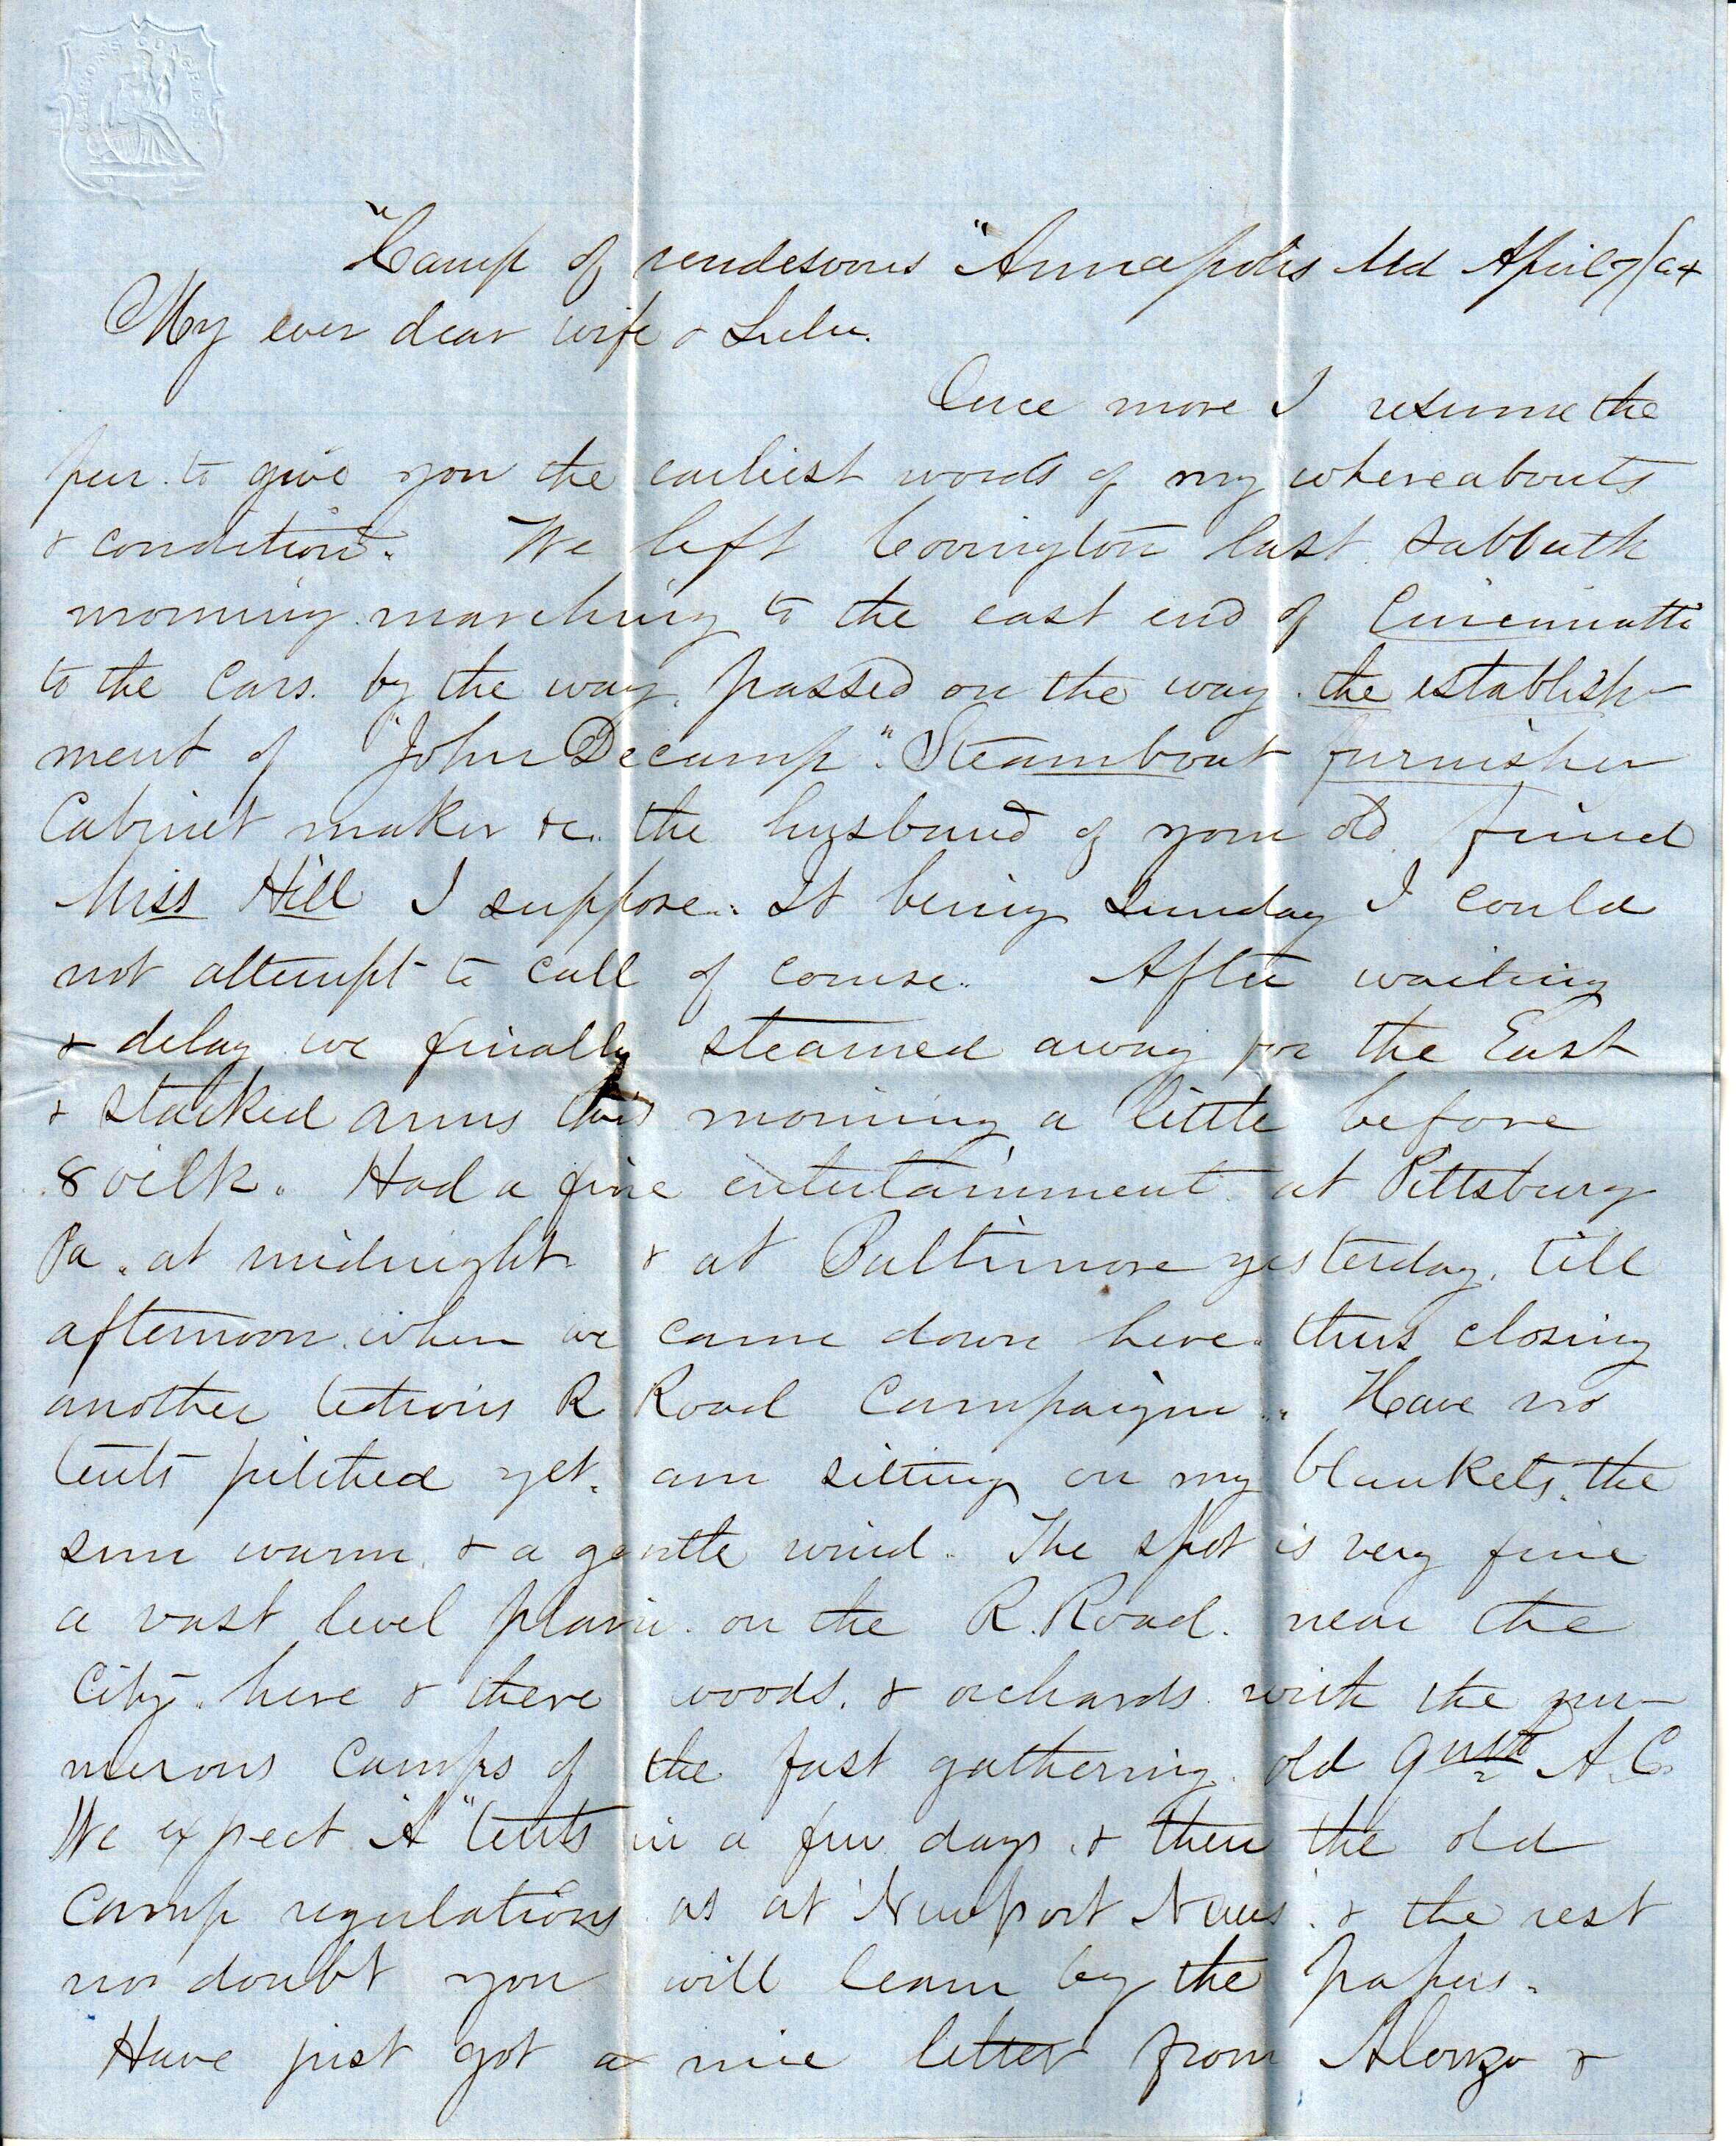 "Camp of rendesvous" Annapolis Md April 7/64
My ever dear wife & Lulu.
Once more I resume the
pen to give you the earliest words of my whereabouts
& condition. We left Covington last Sabbath
morning marching to the east end of Cincinnatti
to the Cars. by the way, passed on the way the establish-
ment of "John Decamp". Steamboat furnisher
Cabinet maker &c. the husband of your old friend
Miss Hill I suppose. It being Sunday I could
not attempt to call of course. After waiting
& delay we finally steamed away for the East
& stacked arms this morning a little before
8 oclk. Had a fine entertainment at Pittsburg
Pa. at midnight & at Baltimore yesterday, till
afternoon when we came down here. thus closing
another tedious R Road Campaign. Have no
tents pitched yet. am sitting on my blankets. the
sun warm & a gentle wind. The spot is very fine
a vast level plain on the R. Road. near the
City. here & there woods. & orchards with the nu-
merous Camps of the fast gathering old 9 A. C.
We expect "A" tents in a few days & then the old
Camp regulations as at Newport News. & the rest
no doubt you will learn by the papers.
Have just got a nice letter from Alonzo &